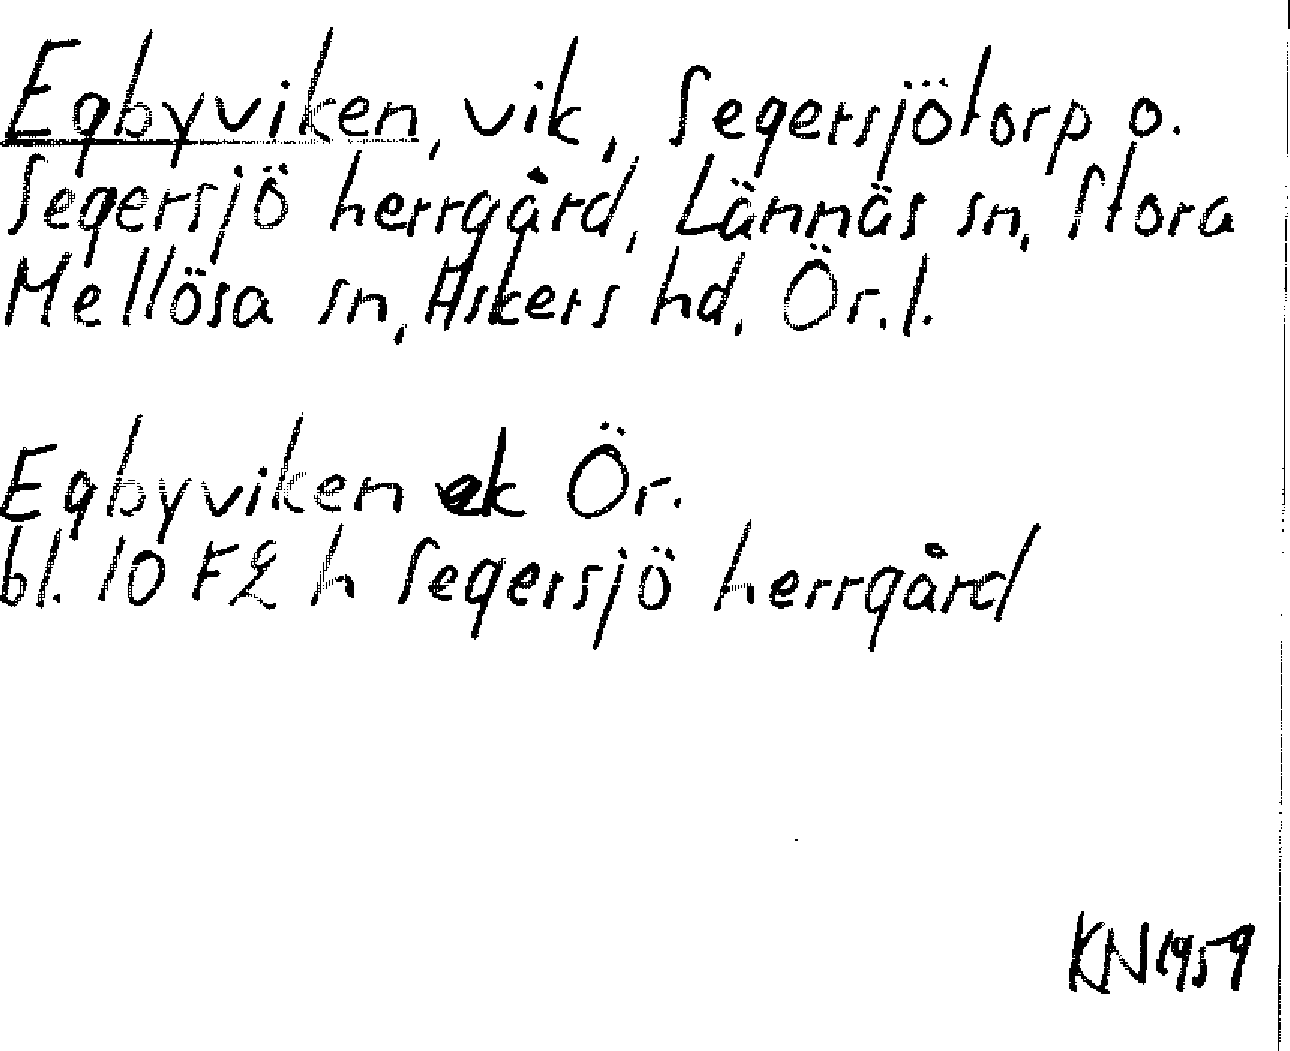 Egbyviken, vik, Segersjötorp o.
Segersjö herrgård, Lännäs sn, Stora
Mellösa sn, Askers hd, Ör. l.
Egbyviken ek Ör.
bl. 10 F2 h Segersjö herrgård
KN 1959